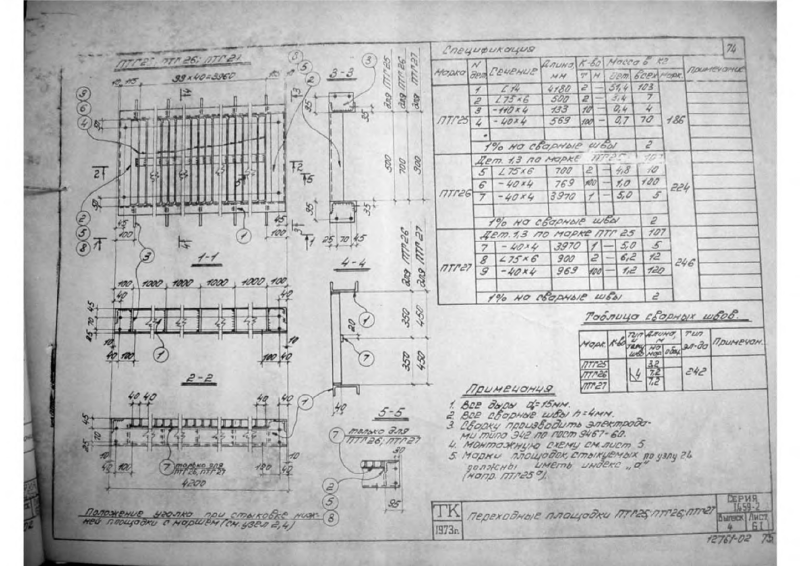 ПТГ25, ПТГ26, ПТГ27
99×40=3960
3-3
для ПТГ25
для ПТГ26
для ПТГ27
500
700
900
1-1
100
1000 1000 1000 1000
100
4-4
для ПТГ26
для ПТГ27
350
450
350
450
2-2
40 40
40 40
7 только для
ПТГ26, ПТГ27
4200
5-5
только для
ПТГ26, ПТГ27
Положение уголка при стыковке ниж-
ней площадки с маршем (см узел 2,4)
Спецификация
74
Марка N дет. Сечение Длина мм К-во Т Н Масса в кг дет. всех марк. Примечание
ПТГ25
1 С14 4180 2 — 51,4 103
2 L75×6 500 2 — 3,4 7
3 -110×4 133 10 — 0,4 4
4 -40×4 569 100 — 0,7 70
186
1% на сварные швы 2
ПТГ26
Дет. 1,3 по марке ПТГ25 107
5 L75×6 700 2 — 4,8 10
6 -40×4 769 100 — 1,0 100
7 -40×4 3970 1 — 5,0 5
224
1% на сварные швы 2
ПТГ27
Дет. 1,3 по марке ПТГ25 107
7 -40×4 3970 1 — 5,0 5
8 L75×6 900 2 — 6,2 12
9 -40×4 969 100 — 1,2 120
246
1% на сварные швы 2
Таблица сварных швов.
Марк. К-во Тип и толщ. шва Длина, м на мар. общ. тип эл-да Примечан.
ПТГ25
ПТГ26 7,2
ПТГ27 7,2
4
Э42
Примечания
1. Все дыры d=15мм.
2. Все сварные швы h=4мм.
3. Сварку производить электрода-
ми типа Э42 по гост 9467-60.
4. Монтажную схему см. лист 5
5. Марки площадок, стыкуемых по узлу 26
должны иметь индекс „а"
(напр. ПТГ25а).
ТК
1973г.
Переходные площадки ПТГ25; ПТГ26; ПТГ27
Серия
1.459-2
Выпуск
4
Лист
61
12761-02 75